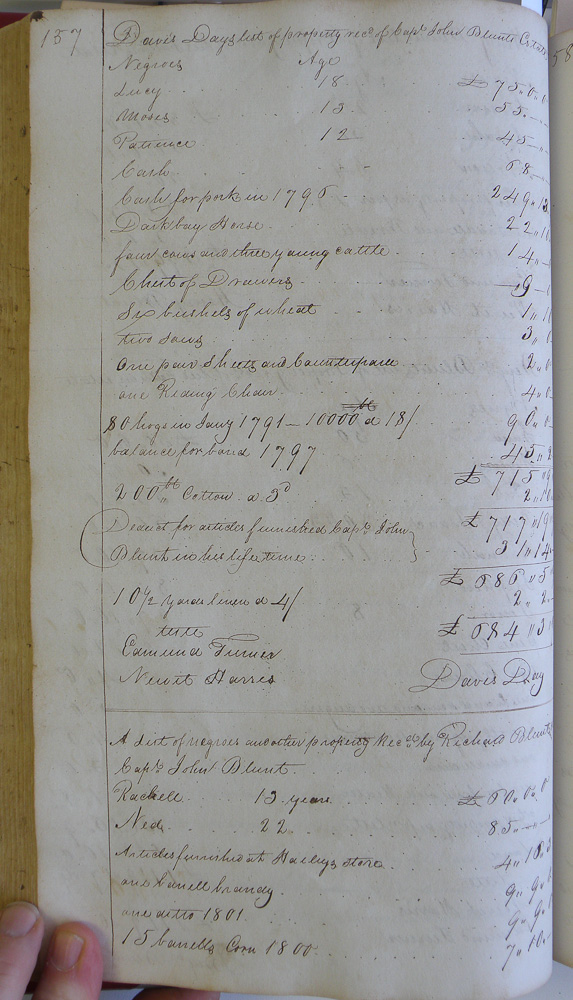 157
Davis Days list of property recd of Capt. John Blunts Estate
Negroes Age
Lucy 18 £ 75.0.0
Moses 13 55.
Patience 12 45
Cash 68
Cash for pork in 1796 249.13
Dark bay Horse 22.10
four cows and three young cattle 14
Chest of Drawers 9
Six bushels of wheat 1.1
two sows 3.
one pair Sheets and Counterpane 2.0
one Riding Chair 4.0
80 hogs in Jany 1791 — 10000 a 18/ 90.0
balance for bond 1797 45.2
£ 715.9
200 lbt Cotton a 3d 2.10
£ 717.19
Deduct for articles furnished Capt. John 31.14
Blunt in his life time
£ 686.5
10½ yards linen a 4/ 2.2
£ 684.3
teste
Edmund Turner
Newit Harris Davis Day
A List of negroes and other property Recd by Richard Blunt
Capt. John Blunt
Rachell 13 years £ 60.0.0
Ned 22 85
Articles furnished at Haileys store 4.18.3
one barrell brandy 9.9.
one ditto 1801 9.9.
15 barrells Corn 1800 7.10
58